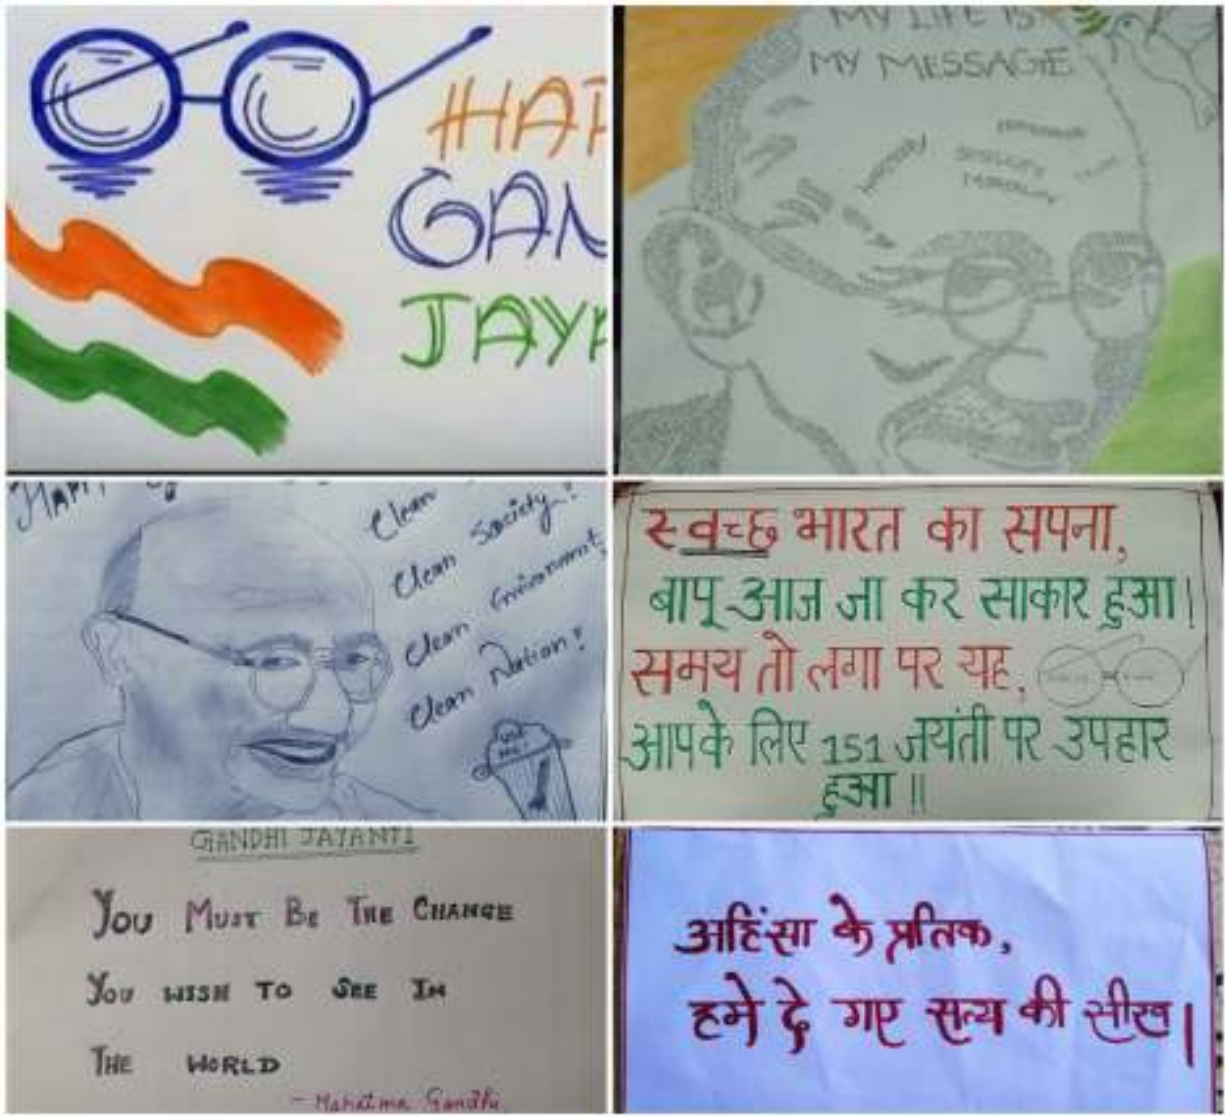 HAP
GAN
JAYA
MY LIFE IS
MY MESSAGE
HONESTY
Clean
Clean Society!
Clean Environment,
Clean Nation!
स्वच्छ भारत का सपना,
बापू आज जा कर साकार हुआ।
समय तो लगा पर यह,
आपके लिए 151 जयंती पर उपहार
हुआ॥
GANDHI JAYANTI
YOU MUST BE THE CHANGE
YOU WISH TO SEE IN
THE WORLD
- Mahatma Gandhi
अहिंसा के प्रतिक,
हमे दे गए सत्य की सीख।